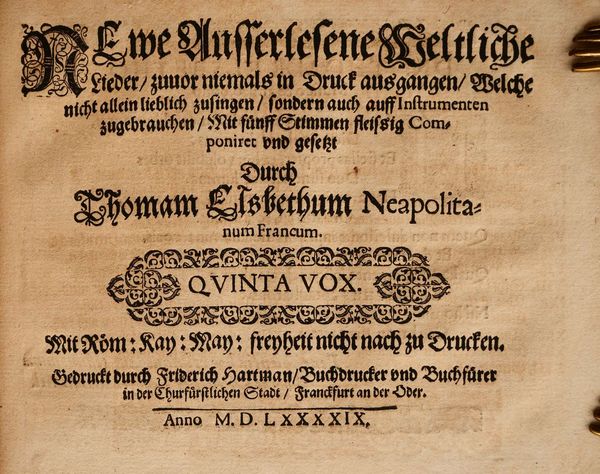 NEwe Ausserlesene Weltliche
Lieder/ zuuor niemals in Druck ausgangen/ Welche
nicht allein lieblich zusingen/ sondern auch auff Instrumenten
zugebrauchen/ Mit fünff Stimmen fleissig Com-
poniret vnd gesetzt
Durch
Thomam Elsbethum Neapolita-
num Francum.
QVINTA VOX.
Mit Röm: Kay: May: freyheit nicht nach zu Drucken.
Gedruckt durch Friderich Hartman/ Buchdrucker vnd Buchfürer
in der Churfürstlichen Stadt/ Franckfurt an der Oder.
Anno M. D. LXXXXIX.